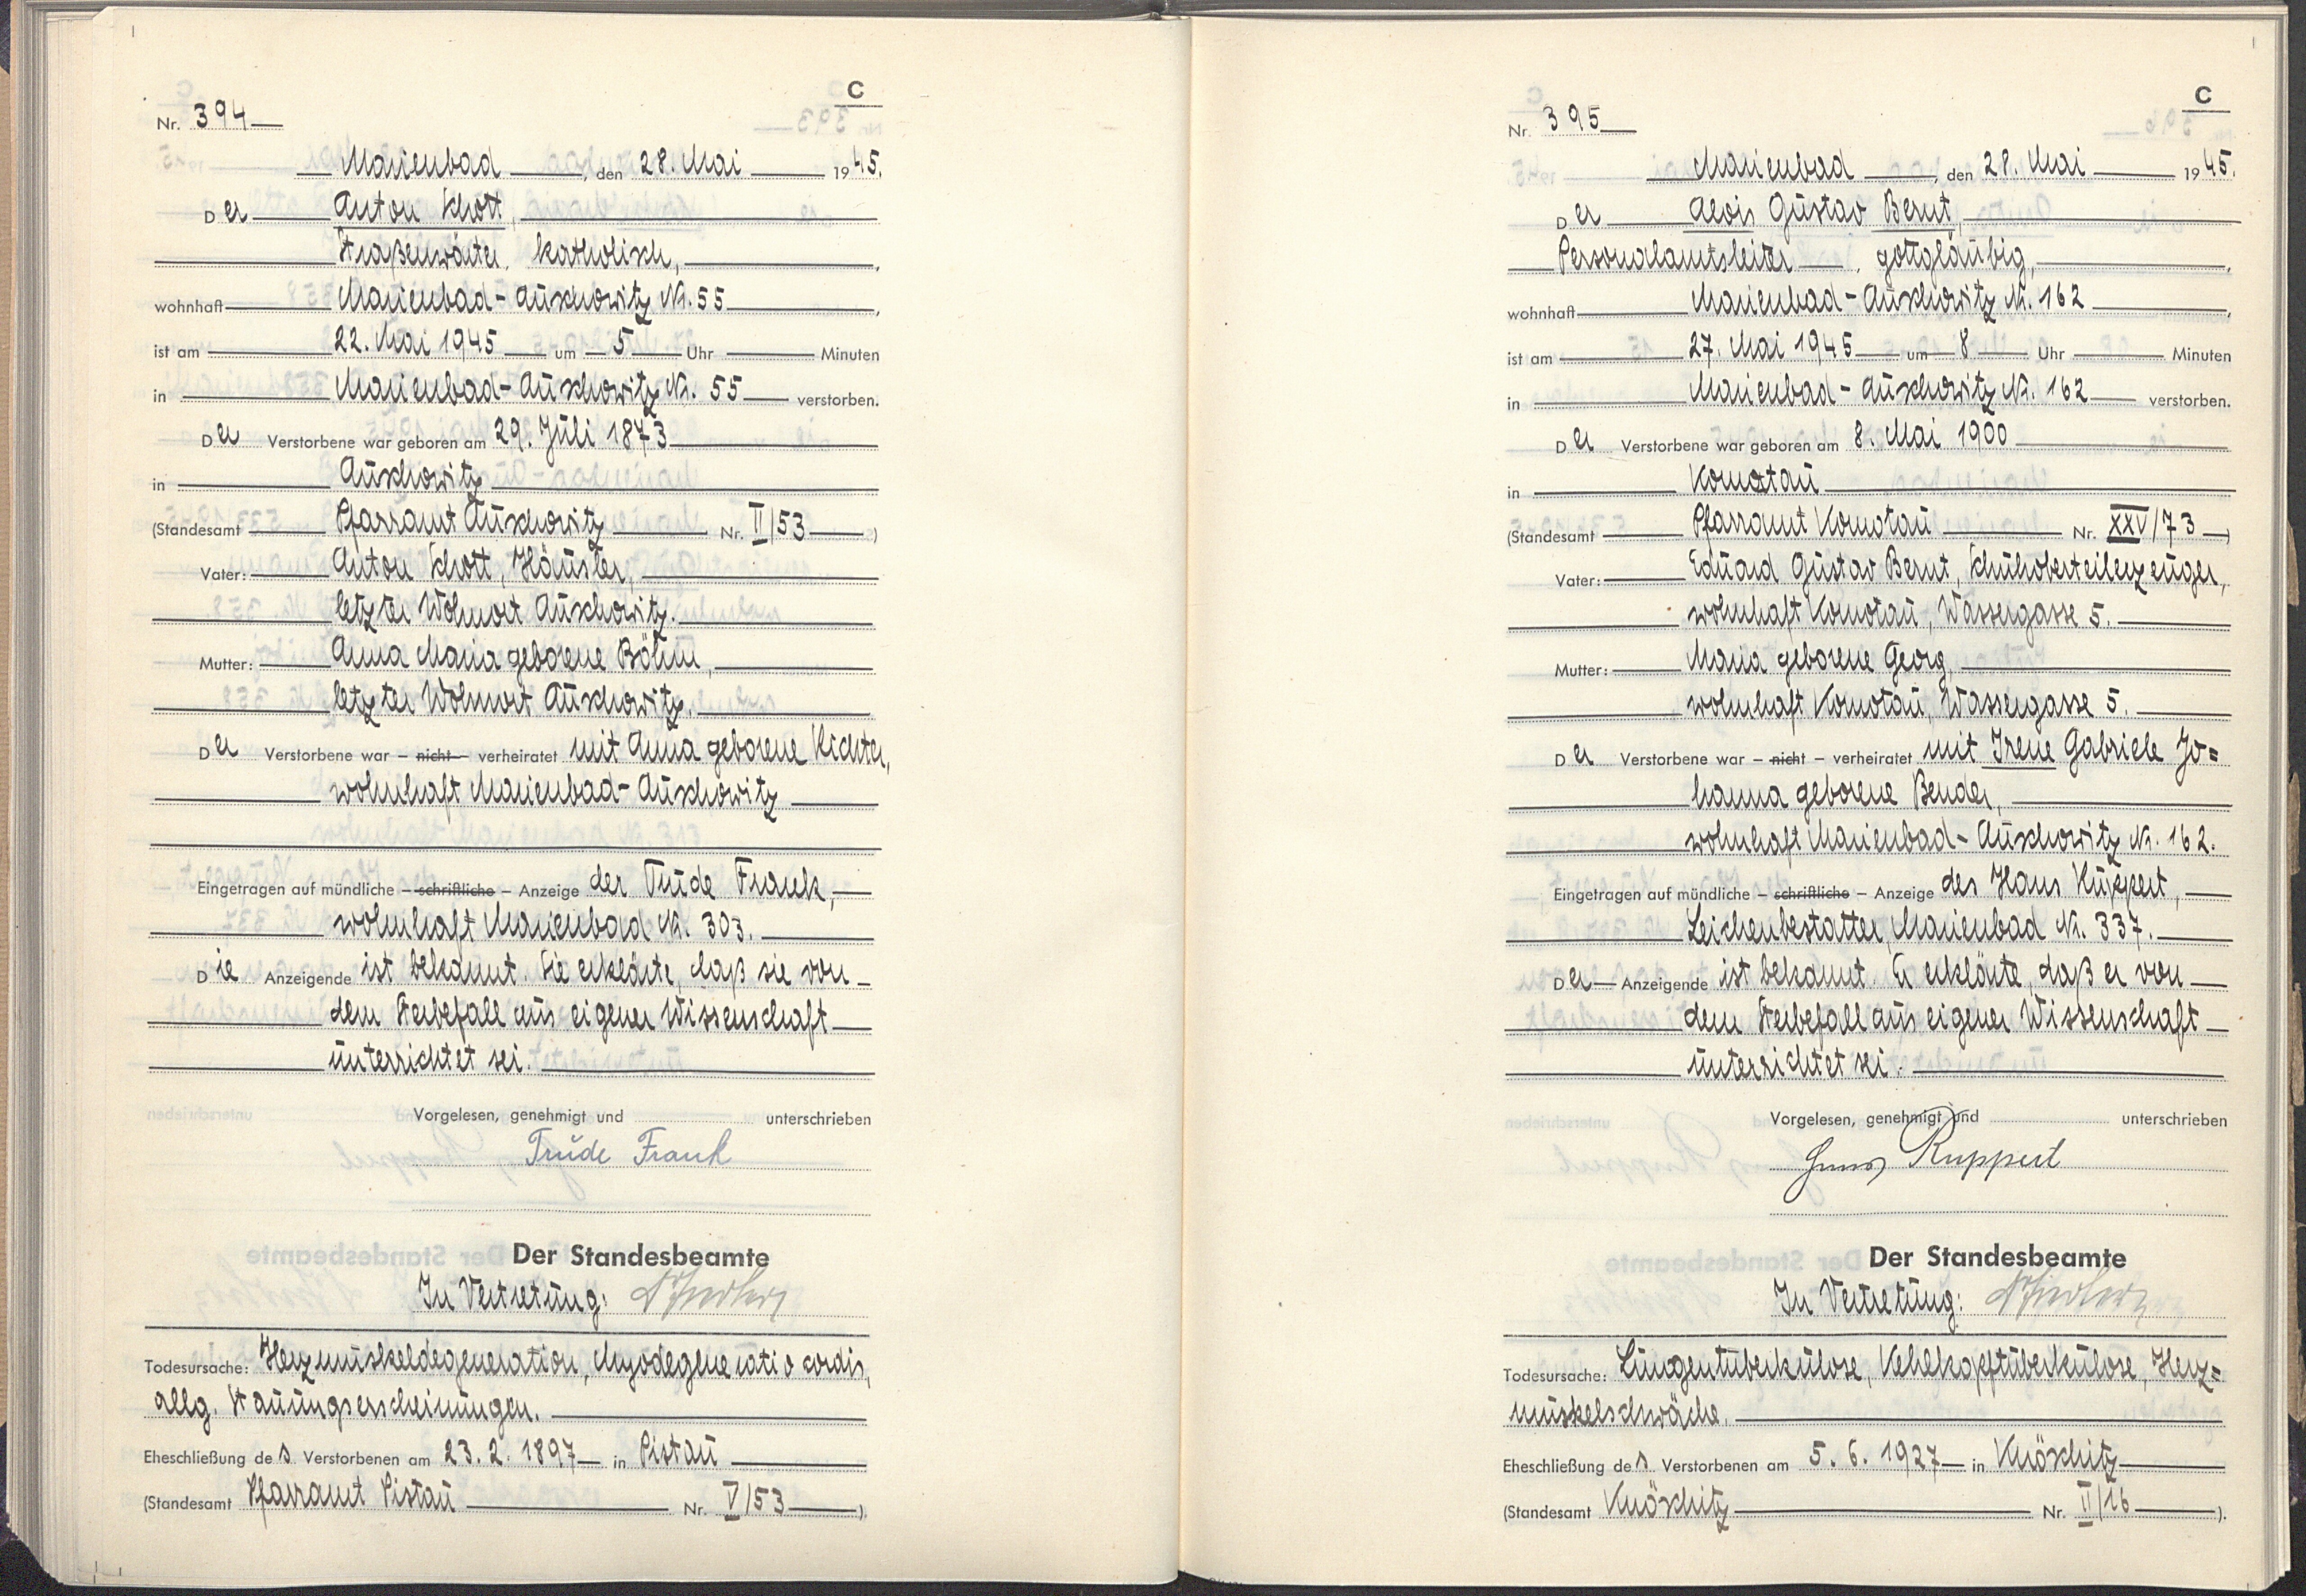 C
Nr. 394
Marienbad, den 28. Mai 1945.
Der Anton Schott,
Straßenwärter, katholisch,
wohnhaft Marienbad-Auschowitz Nr. 55,
ist am 22. Mai 1945 um 5 Uhr Minuten
in Marienbad-Auschowitz Nr. 55 verstorben.
Der Verstorbene war geboren am 29. Juli 1873
in Auschowitz
(Standesamt Pfarramt Auschowitz Nr. II/53)
Vater: Anton Schott, Häusler,
letzter Wohnort Auschowitz.
Mutter: Anna Maria geborene Böhm,
letzter Wohnort Auschowitz.
Der Verstorbene war – nicht – verheiratet mit Anna geborene Richter,
wohnhaft Marienbad-Auschowitz
Eingetragen auf mündliche – schriftliche – Anzeige der Trude Frank,
wohnhaft Marienbad Nr. 303.
Die Anzeigende ist bekannt. Sie erklärte, daß sie von
dem Sterbefall aus eigener Wissenschaft
unterrichtet sei.
Vorgelesen, genehmigt und unterschrieben
Trude Frank
Der Standesbeamte
In Vertretung:
Todesursache: Herzmuskeldegeneration, Myodegeneratio cordis,
allg. Stauungserscheinungen.
Eheschließung des Verstorbenen am 23. 2. 1897 in Pistau
(Standesamt Pfarramt Pistau Nr. V/53).
C
Nr. 395
Marienbad, den 28. Mai 1945.
Der Alois Gustav Bernt,
Personalamtsleiter, gottgläubig,
wohnhaft Marienbad-Auschowitz Nr. 162,
ist am 27. Mai 1945 um 8 Uhr Minuten
in Marienbad-Auschowitz Nr. 162 verstorben.
Der Verstorbene war geboren am 8. Mai 1900
in Komotau
(Standesamt Pfarramt Komotau Nr. XXV/73)
Vater: Eduard Gustav Bernt, Schuhoberteilerzeuger,
wohnhaft Komotau, Wassergasse 5.
Mutter: Maria geborene Georg,
wohnhaft Komotau, Wassergasse 5.
Der Verstorbene war – nicht – verheiratet mit Irene Gabriele Jo=
hanna geborene Bender,
wohnhaft Marienbad-Auschowitz Nr. 162.
Eingetragen auf mündliche – schriftliche – Anzeige des Hans Ruppert,
Leichenbestatter, Marienbad Nr. 337.
Der Anzeigende ist bekannt. Er erklärte, daß er von
dem Sterbefall aus eigener Wissenschaft
unterrichtet sei.
Vorgelesen, genehmigt und unterschrieben
Hans Ruppert
Der Standesbeamte
In Vertretung:
Todesursache: Lungentuberkulose, Kehlkopftuberkulose, Herz=
muskelschwäche.
Eheschließung des Verstorbenen am 5. 6. 1927 in Knöschitz
(Standesamt Knöschitz Nr. II/16).